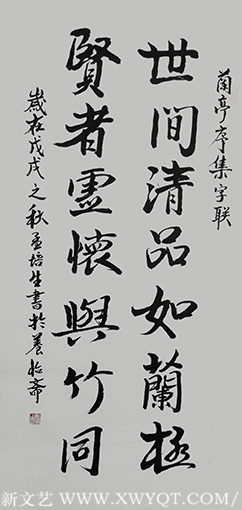 蘭亭序集字联
世間清品如蘭極
賢者虛懷與竹同
歲在戊戌之秋孟培生書於養怡齋
新文艺 WWW.XWYQT.COM